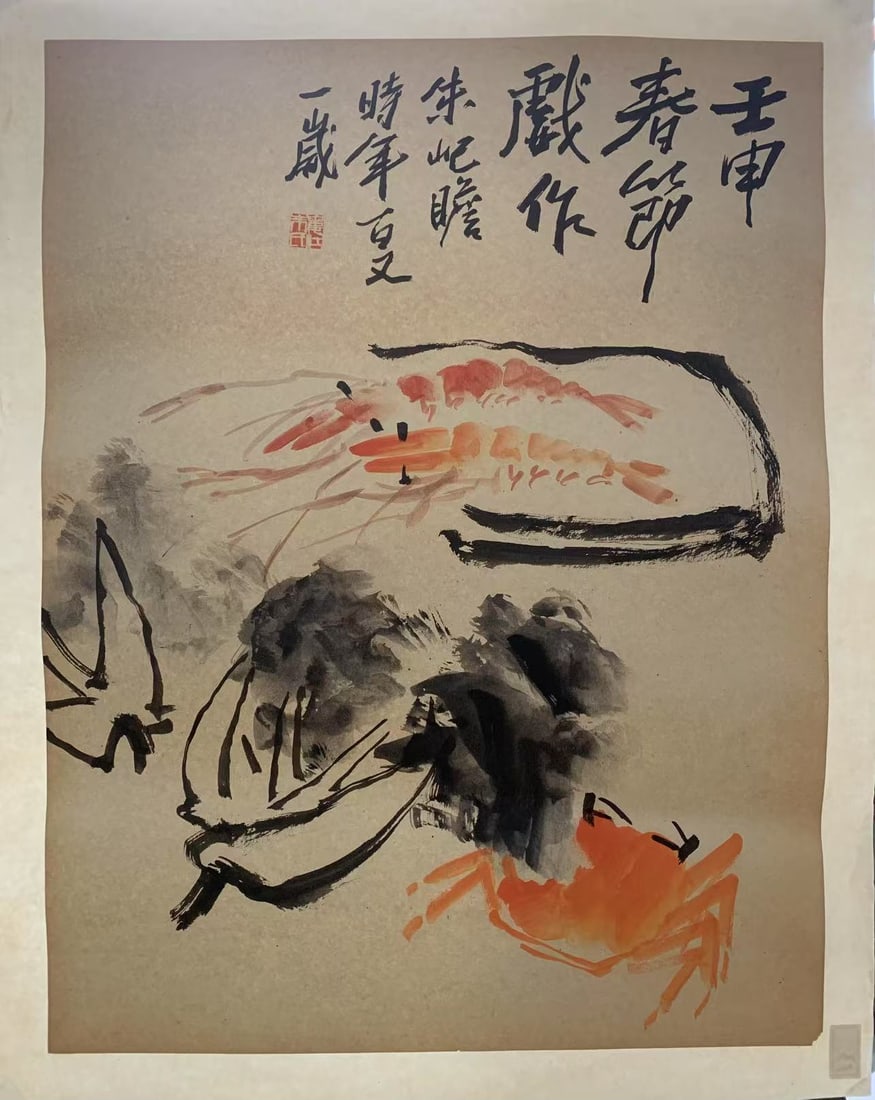 壬申
春節
戲作
朱屺瞻
時年百又
一歲